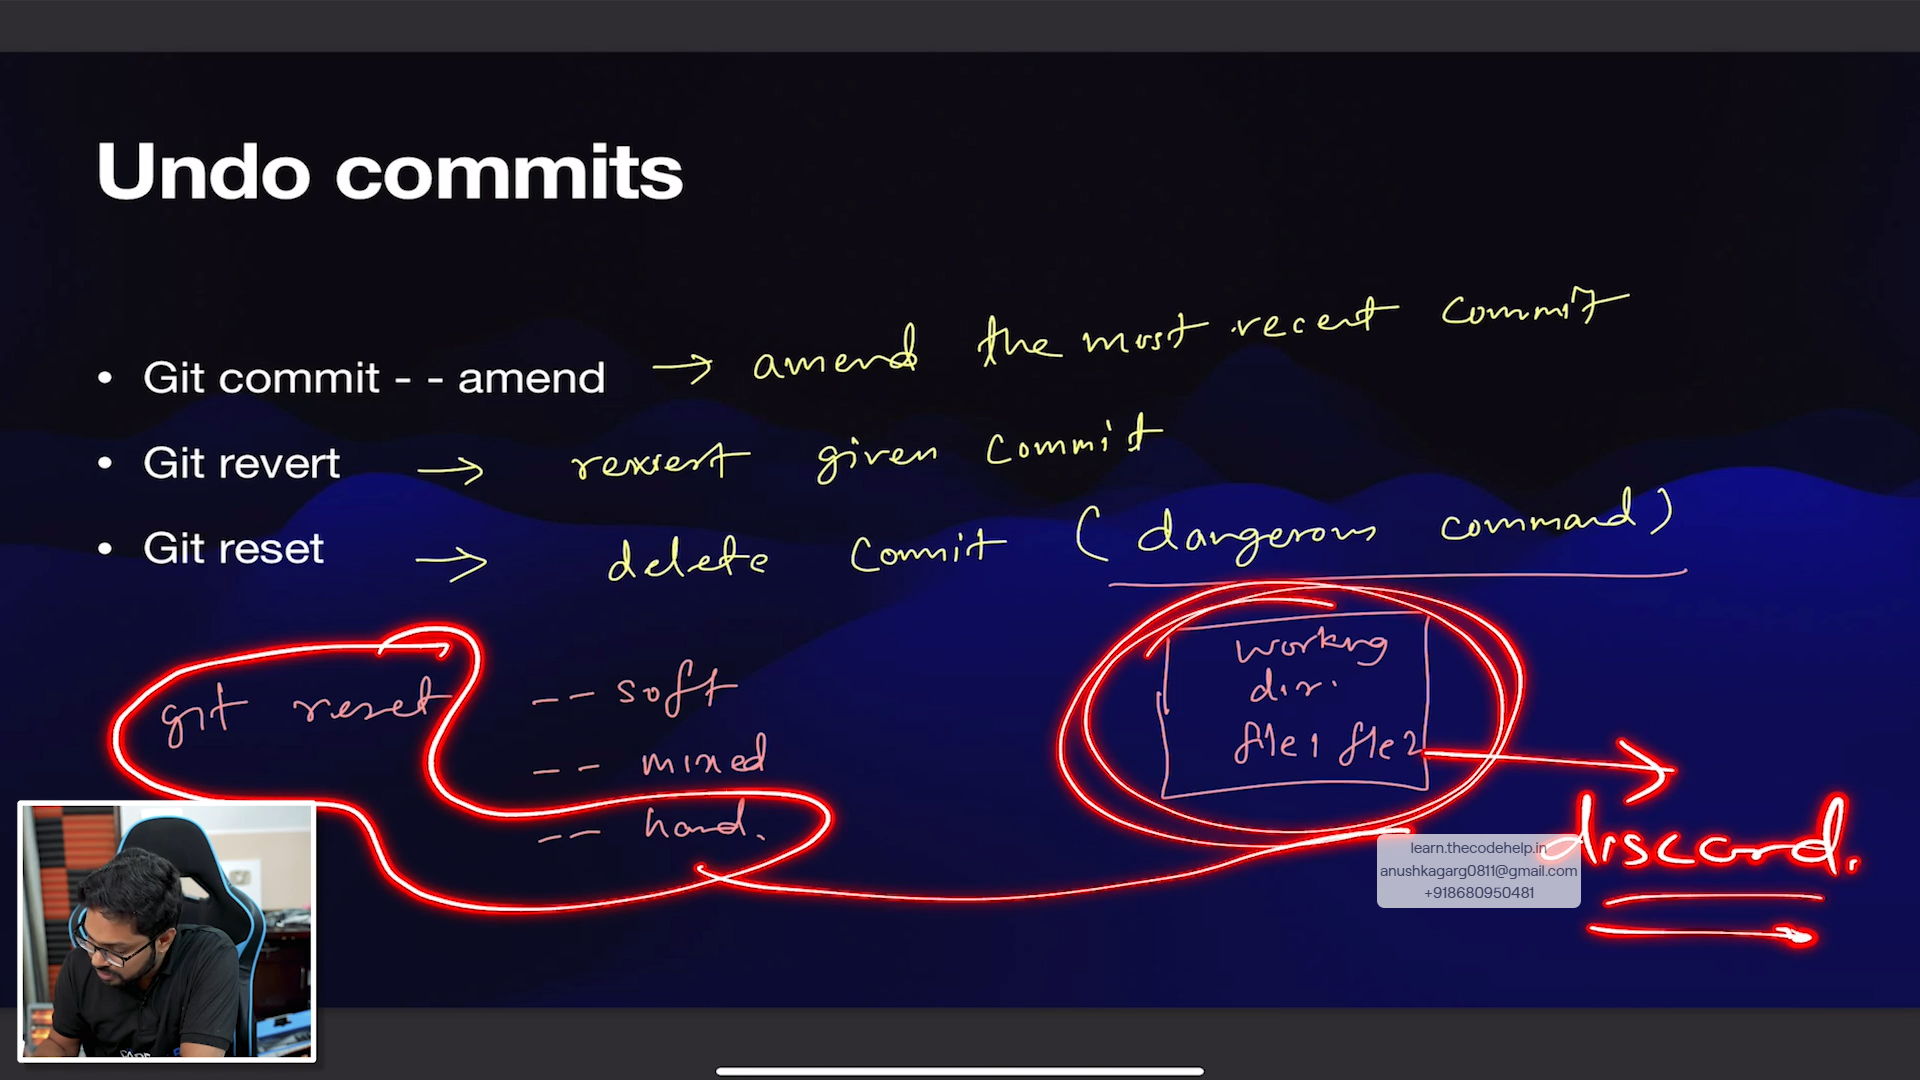 Undo commits
• Git commit - - amend → amend the most recent commit
• Git revert → revert given commit
• Git reset → delete commit (dangerous command)
git reset -- soft
-- mixed
-- hard.
working
dir.
file1 file2
discard.
learn.thecodehelp.in
anushkagarg0811@gmail.com
+918680950481